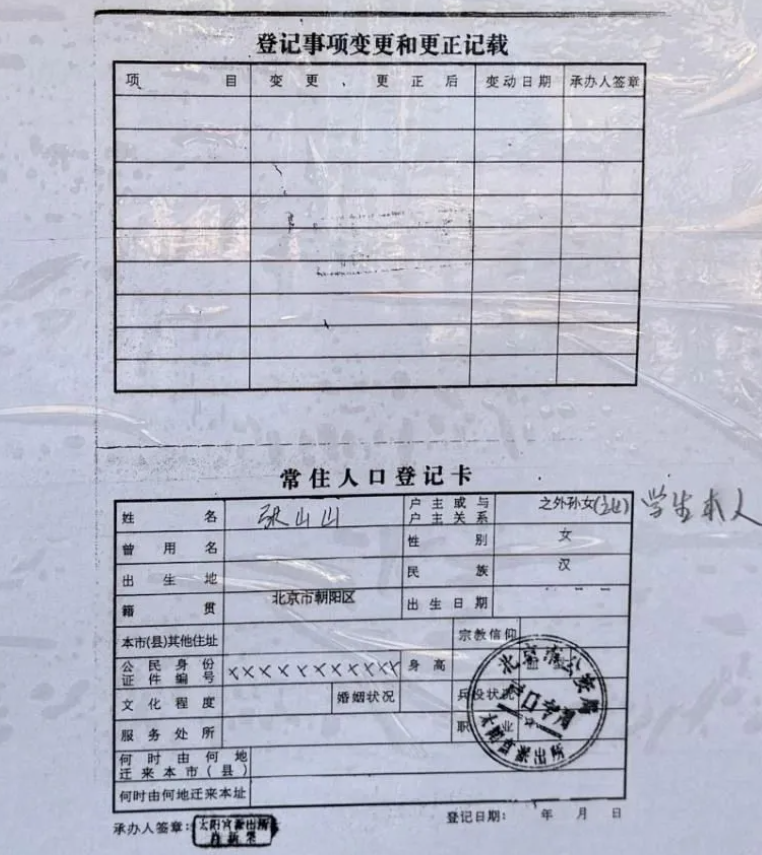 登记事项变更和更正记载
项目 变更、更正后 变动日期 承办人签章
常住人口登记卡
姓名 张山山 户主或与户主关系 之外孙女 学生本人
曾用名 性别 女
出生地 民族 汉
籍贯 北京市朝阳区 出生日期
本市(县)其他住址 宗教信仰
公民身份证件编号 ××××××××××× 身高
文化程度 婚姻状况 兵役状况
服务处所 职业
何时由何地迁来本市(县)
何时由何地迁来本址
北京市公安局
户口专用
太阳宫派出所
承办人签章: 太阳宫派出所
登记日期: 年 月 日